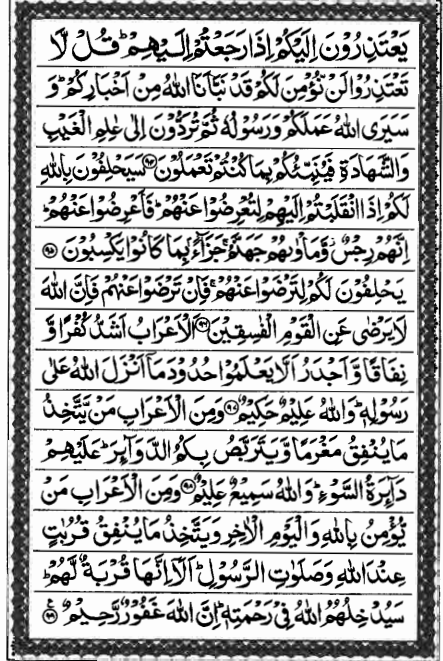 يَعْتَذِرُوْنَ اِلَيْكُمْ اِذَا رَجَعْتُمْ اِلَيْهِمْ ؕ قُلْ لَّا
تَعْتَذِرُوْا لَنْ نُّؤْمِنَ لَكُمْ قَدْ نَبَّاَنَا اللّٰهُ مِنْ اَخْبَارِكُمْ ؕ وَ
سَيَرَى اللّٰهُ عَمَلَكُمْ وَرَسُوْلُهٗ ثُمَّ تُرَدُّوْنَ اِلٰى عٰلِمِ الْغَيْبِ
وَالشَّهَادَةِ فَيُنَبِّئُكُمْ بِمَا كُنْتُمْ تَعْمَلُوْنَ ﴿۹۴﴾ سَيَحْلِفُوْنَ بِاللّٰهِ
لَكُمْ اِذَا انْقَلَبْتُمْ اِلَيْهِمْ لِتُعْرِضُوْا عَنْهُمْ ؕ فَاَعْرِضُوْا عَنْهُمْ ؕ
اِنَّهُمْ رِجْسٌ ؗ وَّمَاْوٰىهُمْ جَهَنَّمُ ۚ جَزَآءًۢ بِمَا كَانُوْا يَكْسِبُوْنَ ﴿۹۵﴾
يَحْلِفُوْنَ لَكُمْ لِتَرْضَوْا عَنْهُمْ ۚ فَاِنْ تَرْضَوْا عَنْهُمْ فَاِنَّ اللّٰهَ
لَا يَرْضٰى عَنِ الْقَوْمِ الْفٰسِقِيْنَ ﴿۹۶﴾ اَلْاَعْرَابُ اَشَدُّ كُفْرًا وَّ
نِفَاقًا وَّاَجْدَرُ اَلَّا يَعْلَمُوْا حُدُوْدَ مَاۤ اَنْزَلَ اللّٰهُ عَلٰى
رَسُوْلِهٖ ؕ وَاللّٰهُ عَلِيْمٌ حَكِيْمٌ ﴿۹۷﴾ وَمِنَ الْاَعْرَابِ مَنْ يَّتَّخِذُ
مَا يُنْفِقُ مَغْرَمًا وَّيَتَرَبَّصُ بِكُمُ الدَّوَآىِٕرَ ؕ عَلَيْهِمْ
دَآىِٕرَةُ السَّوْءِ ؕ وَاللّٰهُ سَمِيْعٌ عَلِيْمٌ ﴿۹۸﴾ وَمِنَ الْاَعْرَابِ مَنْ
يُّؤْمِنُ بِاللّٰهِ وَالْيَوْمِ الْاٰخِرِ وَيَتَّخِذُ مَا يُنْفِقُ قُرُبٰتٍ
عِنْدَ اللّٰهِ وَصَلَوٰتِ الرَّسُوْلِ ؕ اَلَاۤ اِنَّهَا قُرْبَةٌ لَّهُمْ ؕ
سَيُدْخِلُهُمُ اللّٰهُ فِيْ رَحْمَتِهٖ ؕ اِنَّ اللّٰهَ غَفُوْرٌ رَّحِيْمٌ ﴿۹۹﴾